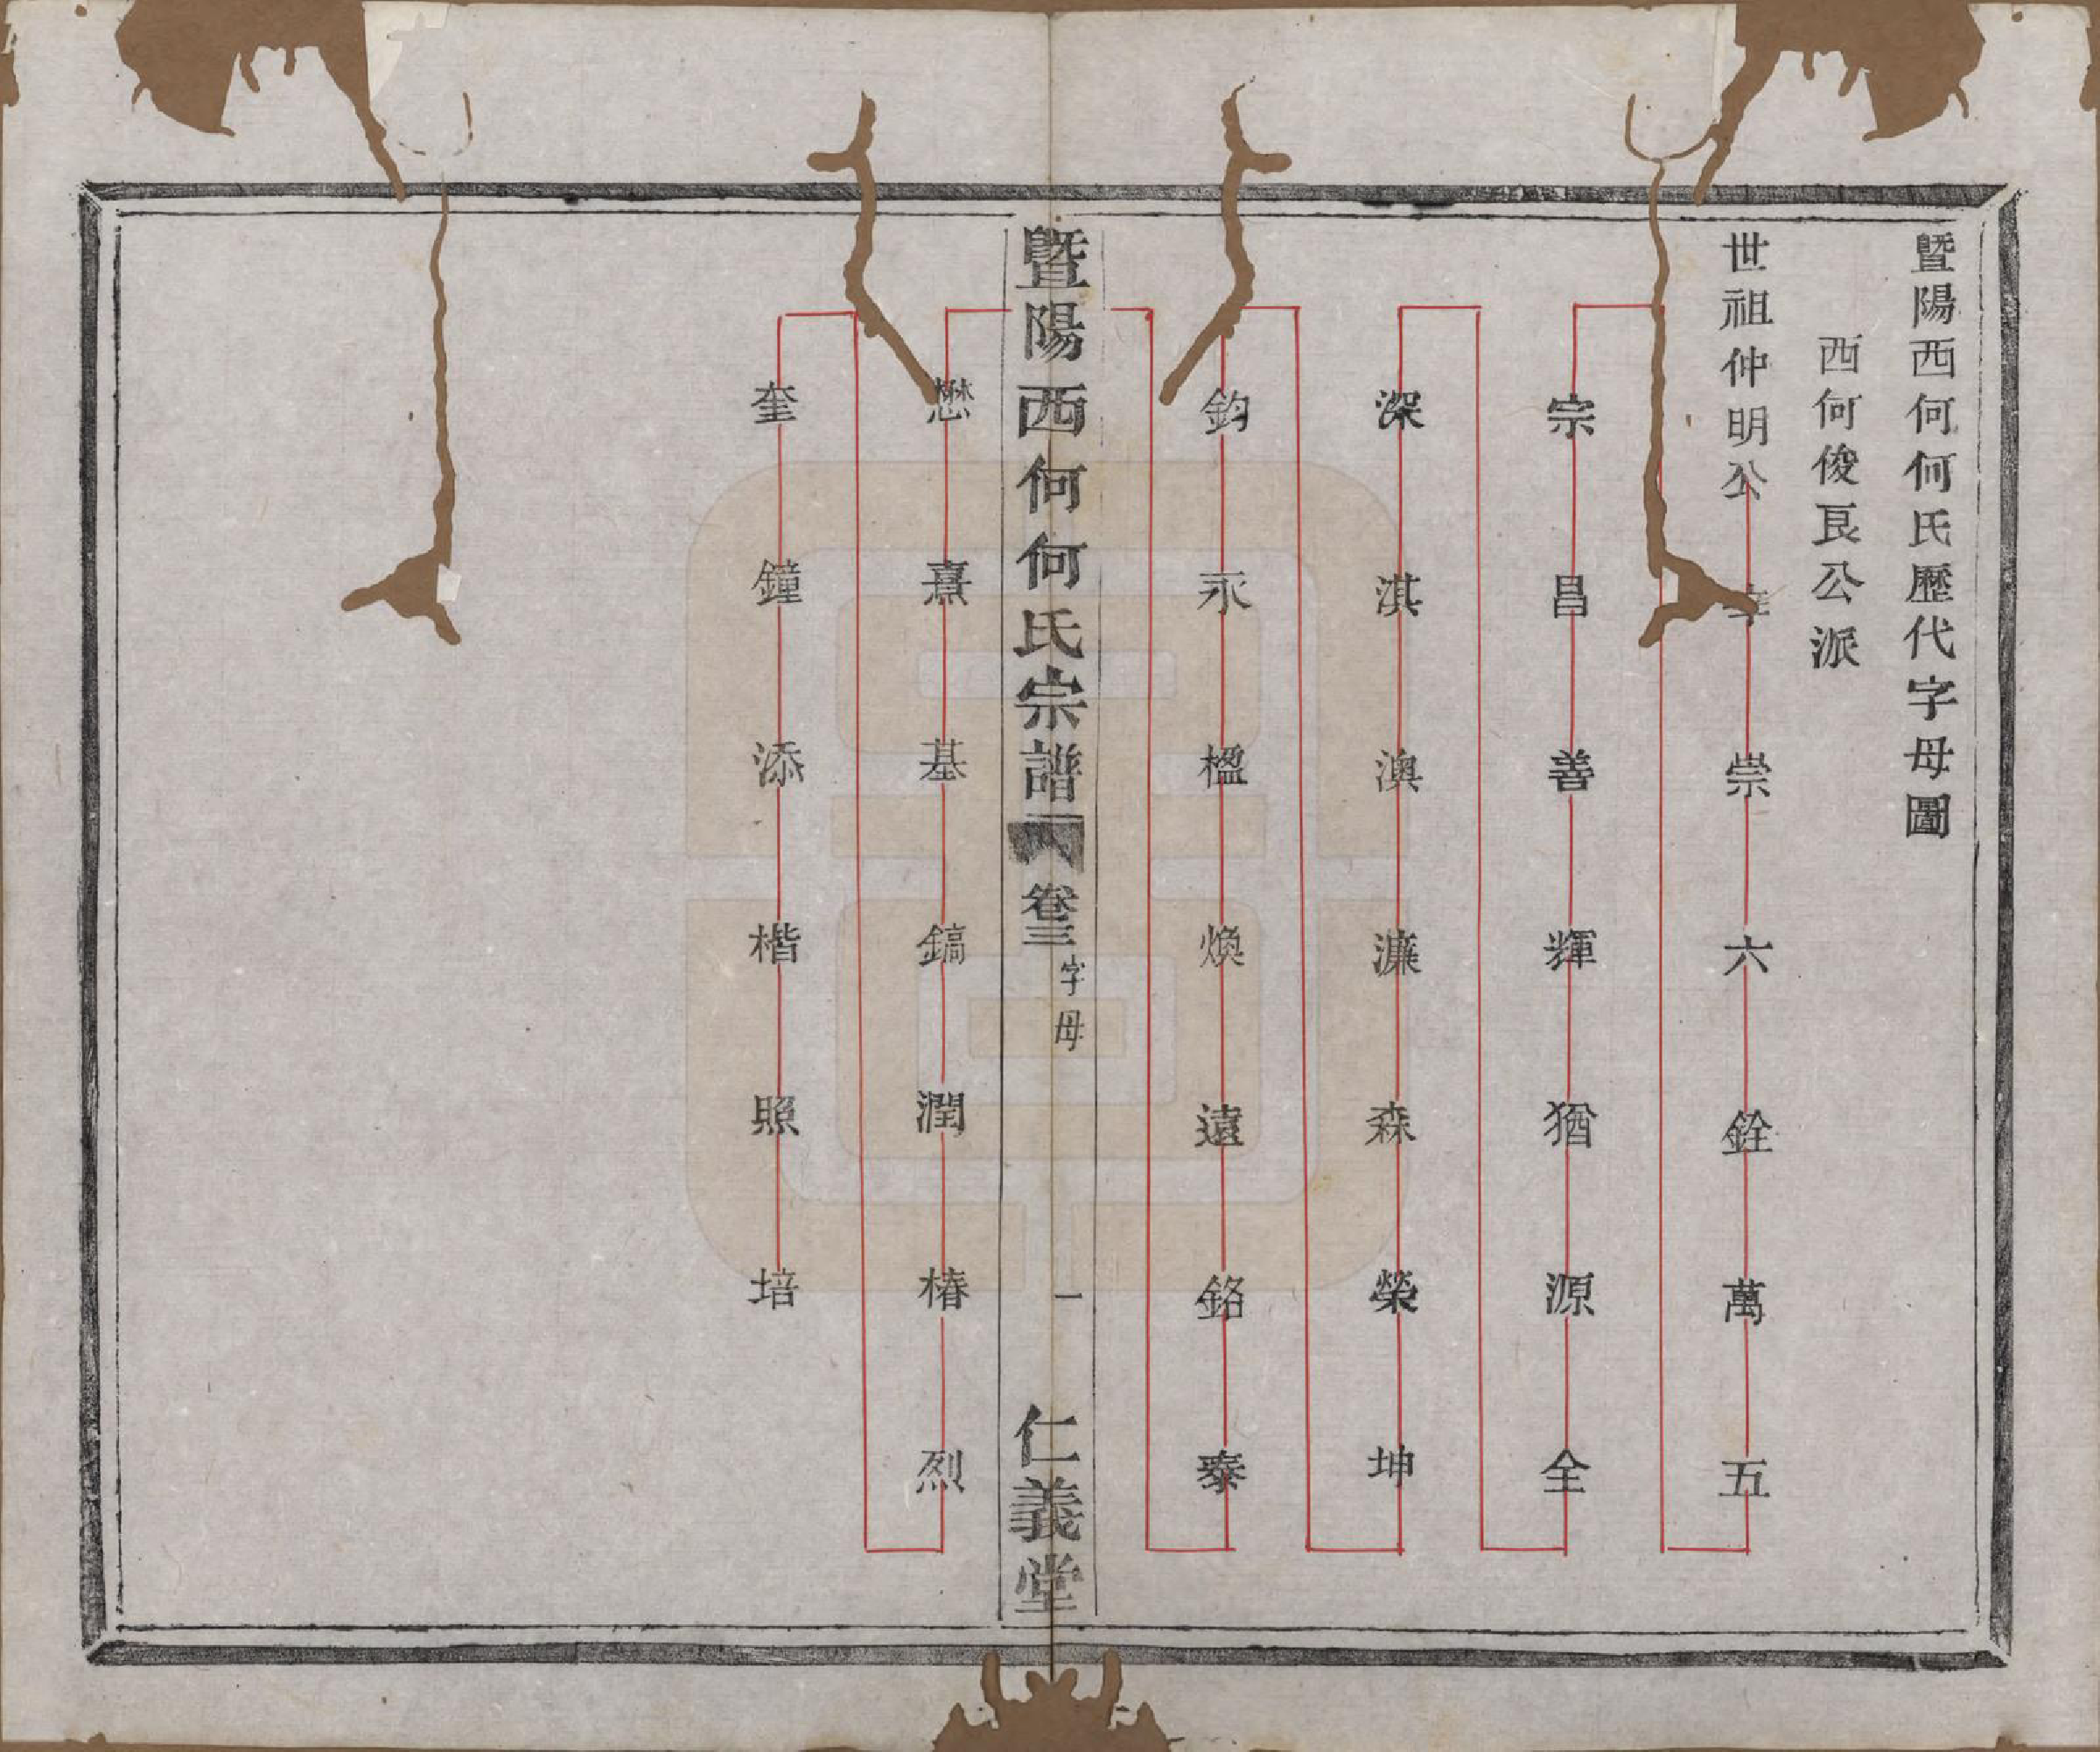 暨陽西何何氏歷代字母圖
西何俊良公派
世祖仲明公 崇 六 銓 萬 五
宗 昌 善 輝 猶 源 全
深 淇 澳 濂 森 榮 坤
鈞 永 楹 煥 遠 銘 泰
暨陽西何何氏宗譜 卷三 字母 一 仁義堂
懋 熹 基 鎬 潤 椿 烈
奎 鐘 添 楷 照 培